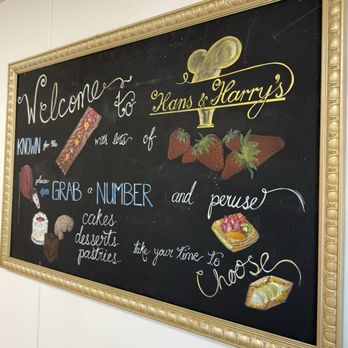 Welcome to Hans & Harry's
KNOWN for the with lots of
please GRAB a NUMBER and peruse
cakes
desserts
pastries
take your time to
Choose